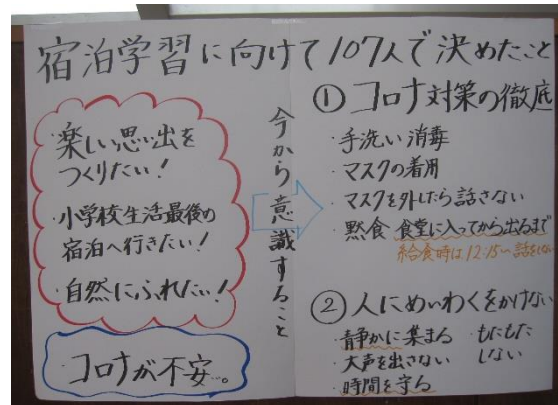 宿泊学習に向けて107人で決めたこと
・楽しい思い出を
つくりたい!
・小学校生活最後の
宿泊へ行きたい!
・自然にふれたい!
コロナが不安…。
今から意識すること
① コロナ対策の徹底
・手洗い 消毒
・マスクの着用
・マスクを外したら話さない
・黙食 食堂に入ってから出るまで
給食時は12:15〜話をしない
② 人にめいわくをかけない
・静かに集まる もたもた
・大声を出さない しない
・時間を守る